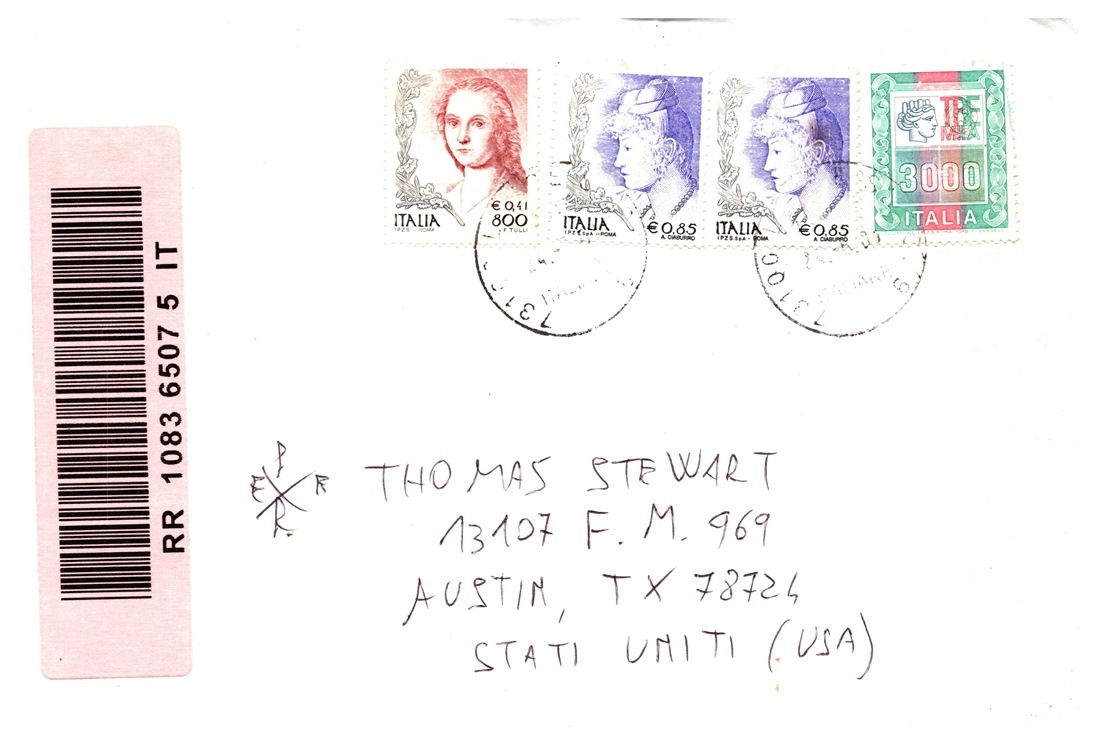 € 0,41
ITALIA 800
I.P.Z.S. - ROMA F. TULLI
ITALIA € 0,85
I.P.Z.S. S.p.A. - ROMA A. CIABURRO
ITALIA € 0,85
I.P.Z.S. S.p.A. - ROMA A. CIABURRO
TRE
MILA
3000
ITALIA
RR 1083 6507 5 IT
P
E R
R
THOMAS STEWART
13107 F. M. 969
AUSTIN, TX 78724
STATI UNITI (USA)